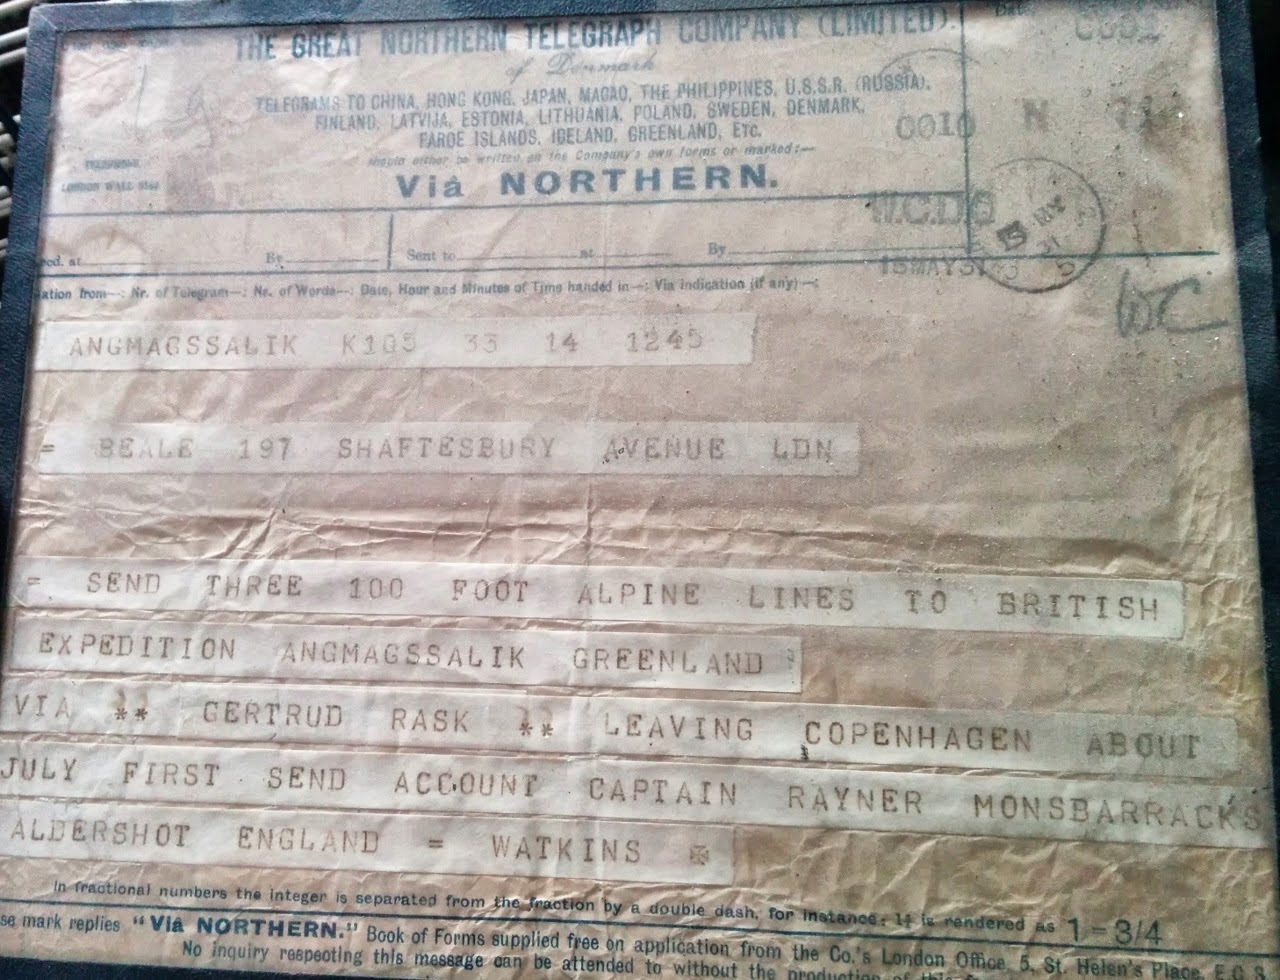 THE GREAT NORTHERN TELEGRAPH COMPANY (LIMITED).
of Denmark
TELEGRAMS TO CHINA, HONG KONG, JAPAN, MACAO, THE PHILIPPINES, U.S.S.R. (RUSSIA),
FINLAND, LATVIJA, ESTONIA, LITHUANIA, POLAND, SWEDEN, DENMARK,
FAROE ISLANDS, ICELAND, GREENLAND, ETC.
should either be written on the Company's own forms or marked:—
Viâ NORTHERN.
TELEPHONE
LONDON WALL
0010 N
15 MAY 31
WC
By Sent to at By
ation from—: Nr. of Telegram—: Nr. of Words—: Date, Hour and Minutes of Time handed in—: Via indication (if any)—:
ANGMAGSSALIK K105 33 14 1245
= BEALE 197 SHAFTESBURY AVENUE LDN
= SEND THREE 100 FOOT ALPINE LINES TO BRITISH
EXPEDITION ANGMAGSSALIK GREENLAND
VIA ** GERTRUD RASK ** LEAVING COPENHAGEN ABOUT
JULY FIRST SEND ACCOUNT CAPTAIN RAYNER MONSBARRACKS
ALDERSHOT ENGLAND = WATKINS
In fractional numbers the integer is separated from the fraction by a double dash, for instance: 1¾ is rendered as 1=3/4
se mark replies "Viâ NORTHERN." Book of Forms supplied free on application from the Co.'s London Office, 5, St. Helen's Place, E.C.3
No inquiry respecting this message can be attended to without the production of this